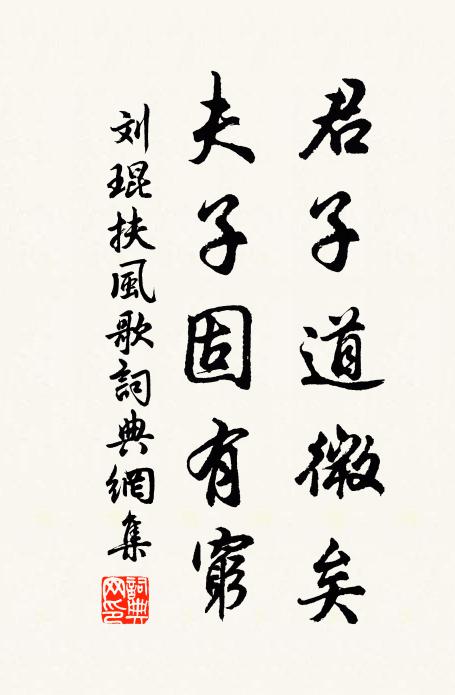 君子道微矣
夫子固有窮
刘琨扶風歌詞典網集
詞典網印